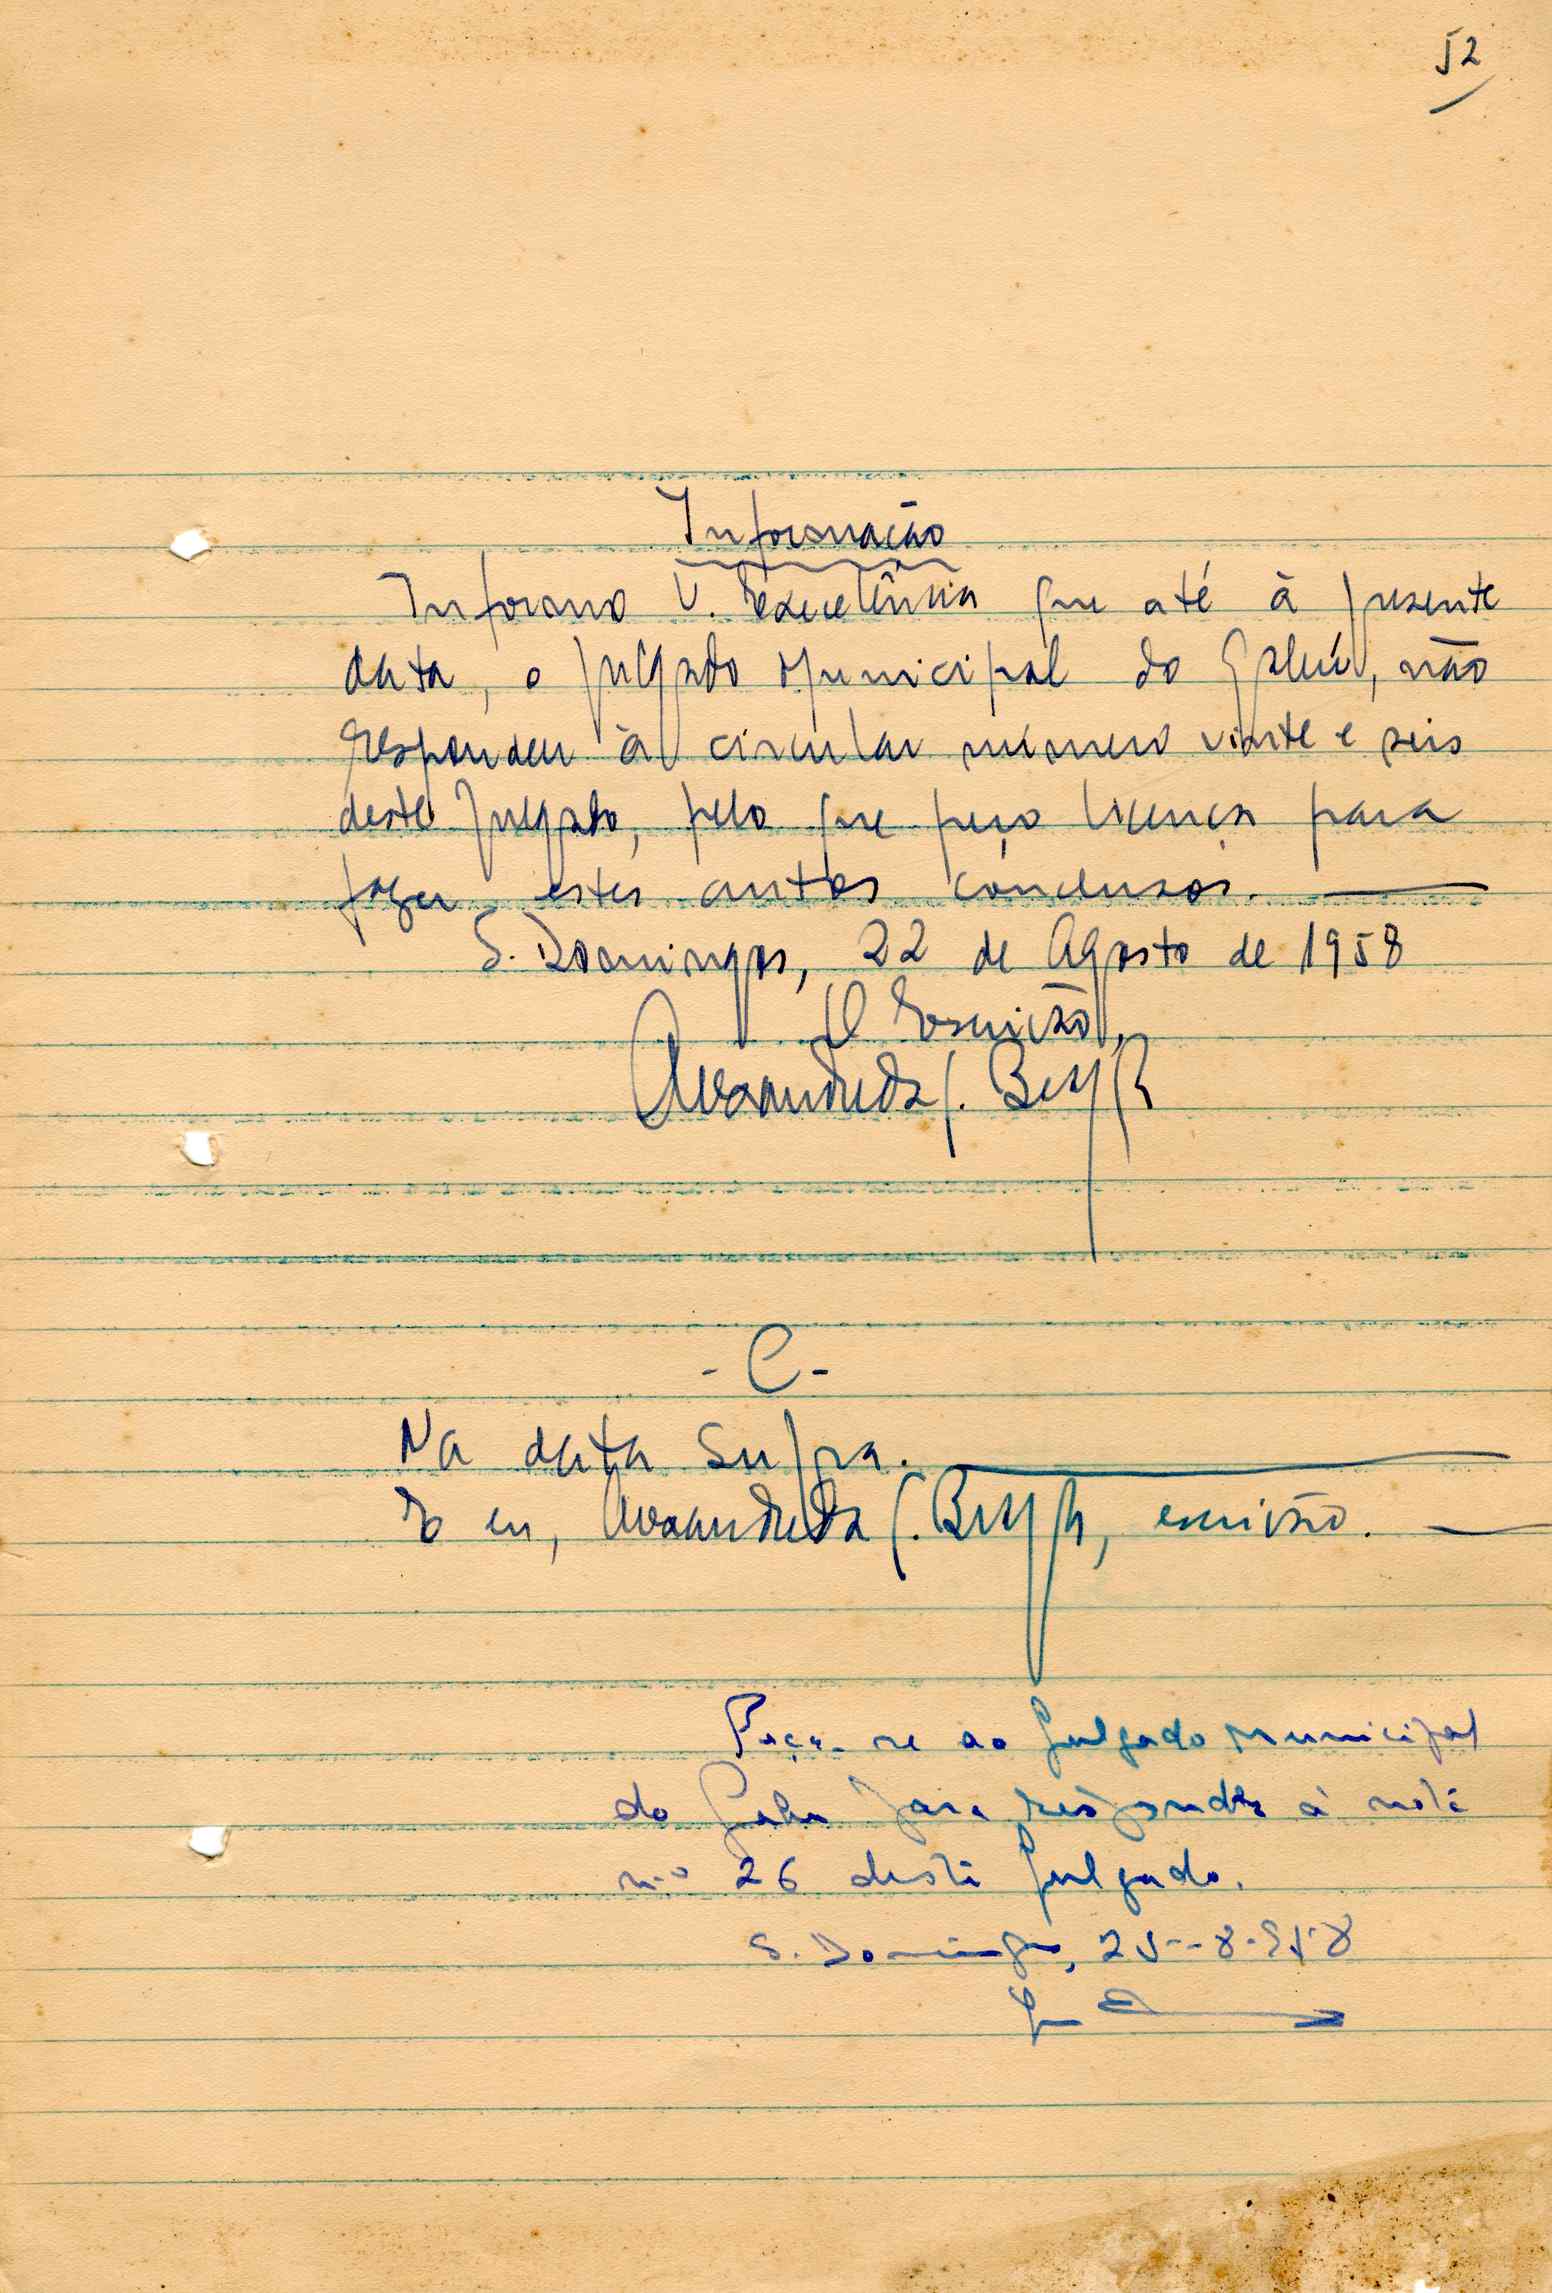 52
Informação
Informo V. Excelência que até à presente
data, o Julgado Municipal do Gabú, não
respondeu à circular número vinte e seis
deste Julgado, pelo que peço licença para
fazer estes autos conclusos.
S. Domingos, 22 de Agosto de 1958
O Escrivão,
- C -
Na data supra.
E eu, escrivão.
Peça-se ao Julgado Municipal
do Gabu para responder à nota
n.º 26 deste Julgado.
S. Domingos, 25-8-958